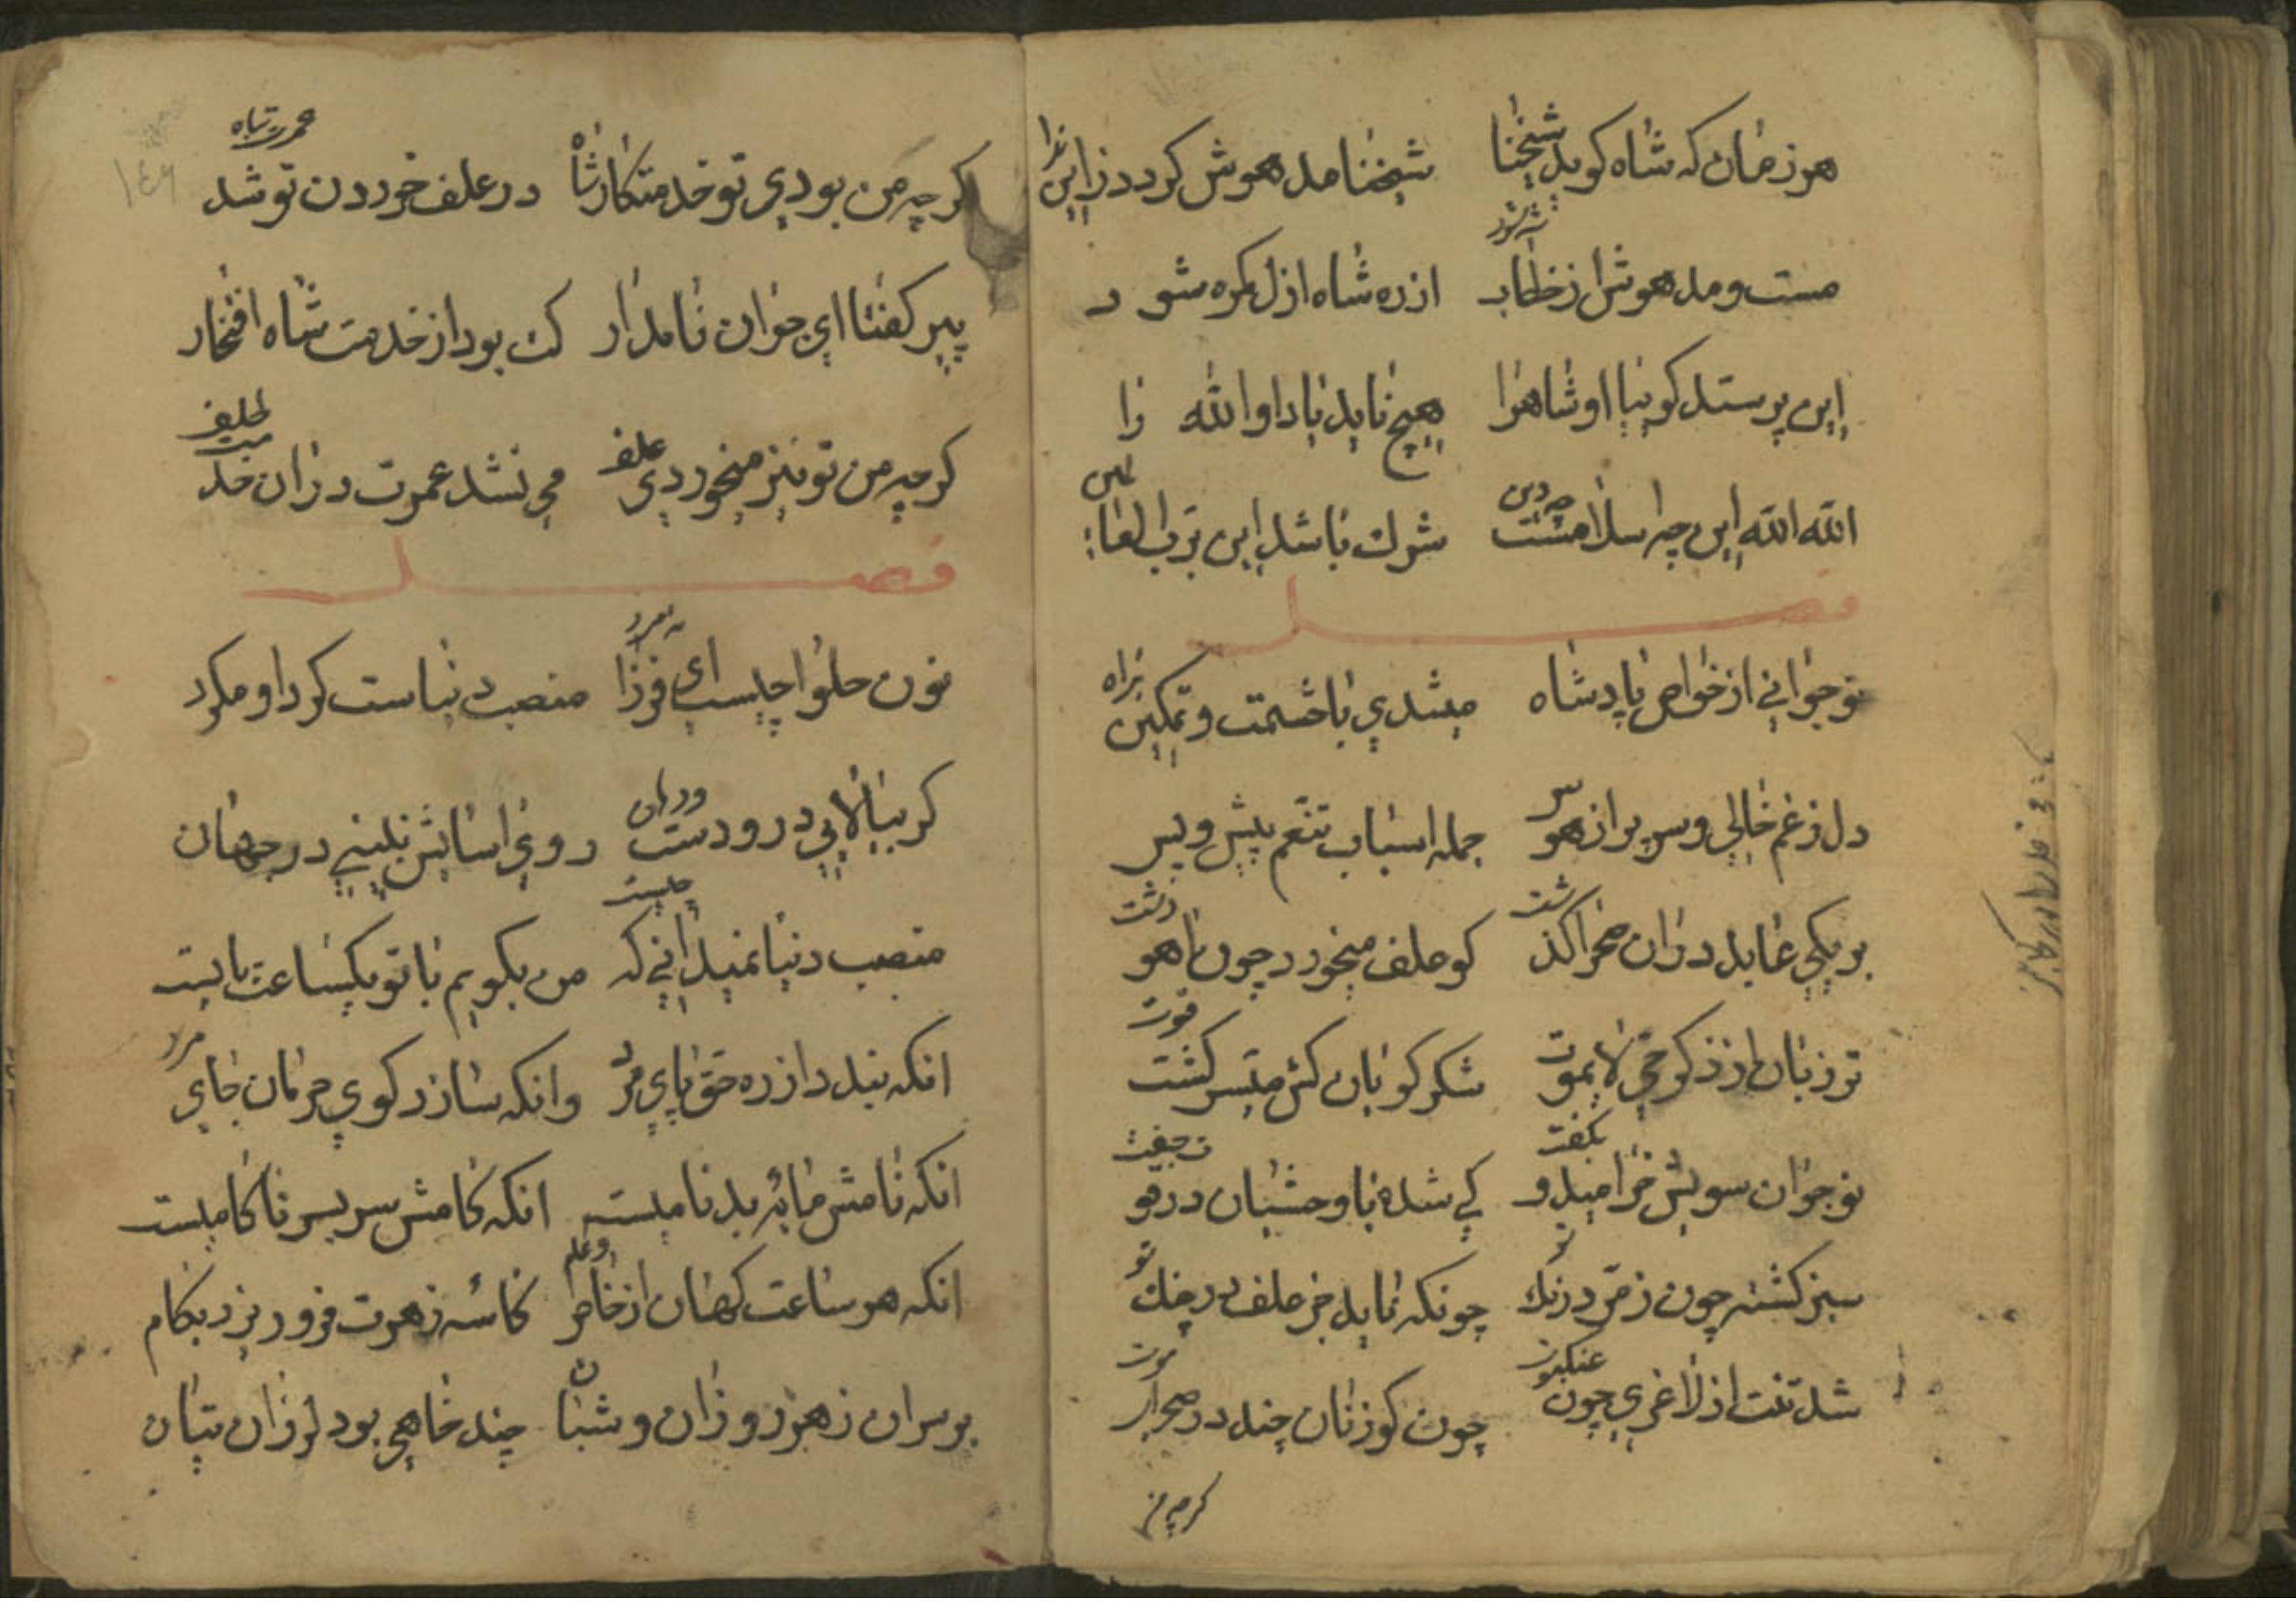 هر زمان که شاه گوید شیخنا شیخنا مدهوش گردد زاین ندا
مست و مدهوش از خطاب شه شود از ره شاه ازل گمره شود
این پرستد گوییا او شاه را هیچ ناید یاد او الله را
الله الله این چه اسلامست چه دین شرک باشد این برب العالمین
فصل
نوجوانی از خواص پادشاه میشدی با حشمت و تمکین براه
دل ز غم خالی و سر پر از هوس جمله اسباب تنعم پیش و پس
بر یکی عابد دران صحرا گذشت کو علف میخورد چون آهوی دشت
تر زبان از ذکر حی لایموت شکر گویان کش میسر گشت قوت
نوجوان سویش خرامید و بگفت کی شده با وحشیان در قوت جفت
سبز گشته چون زمرد رنگ تو چونکه ناید جز علف در چنگ تو
شد تنت از لاغری چون عنکبوت چون گوزنان چند در صحرا
گرچه من
گرچه من بودی تو خدمتکار شاه در علف خوردن تو شد عمرت تباه
پیر گفتا ای جوان نامدار کت بود از خدمت شاه افتخار
گرچه من تو نیز میخوردی علف می نشد عمرت دران خدمت تلف
فصل
نون حلوا چیست ای فرزانه مرد منصب دنیاست گرد او مگرد
گر بیالایی درو دست و دهان روی اسایش نبینی در جهان
منصب دنیا نمیدانی که چیست من بگویم با تو یکساعت بایست
انکه بندد از ره حق پای مرد وانکه سازد کوی حرمان جای مرد
انکه نامش مایه بدنامیست انکه کامش سر بسر ناکامیست
انکه هر ساعت نهان از خاص و عام کاسه زهرت فرو ریزد بکام
بر سر ان زهر روزان و شبان چند خاهی بود لرزان تپان